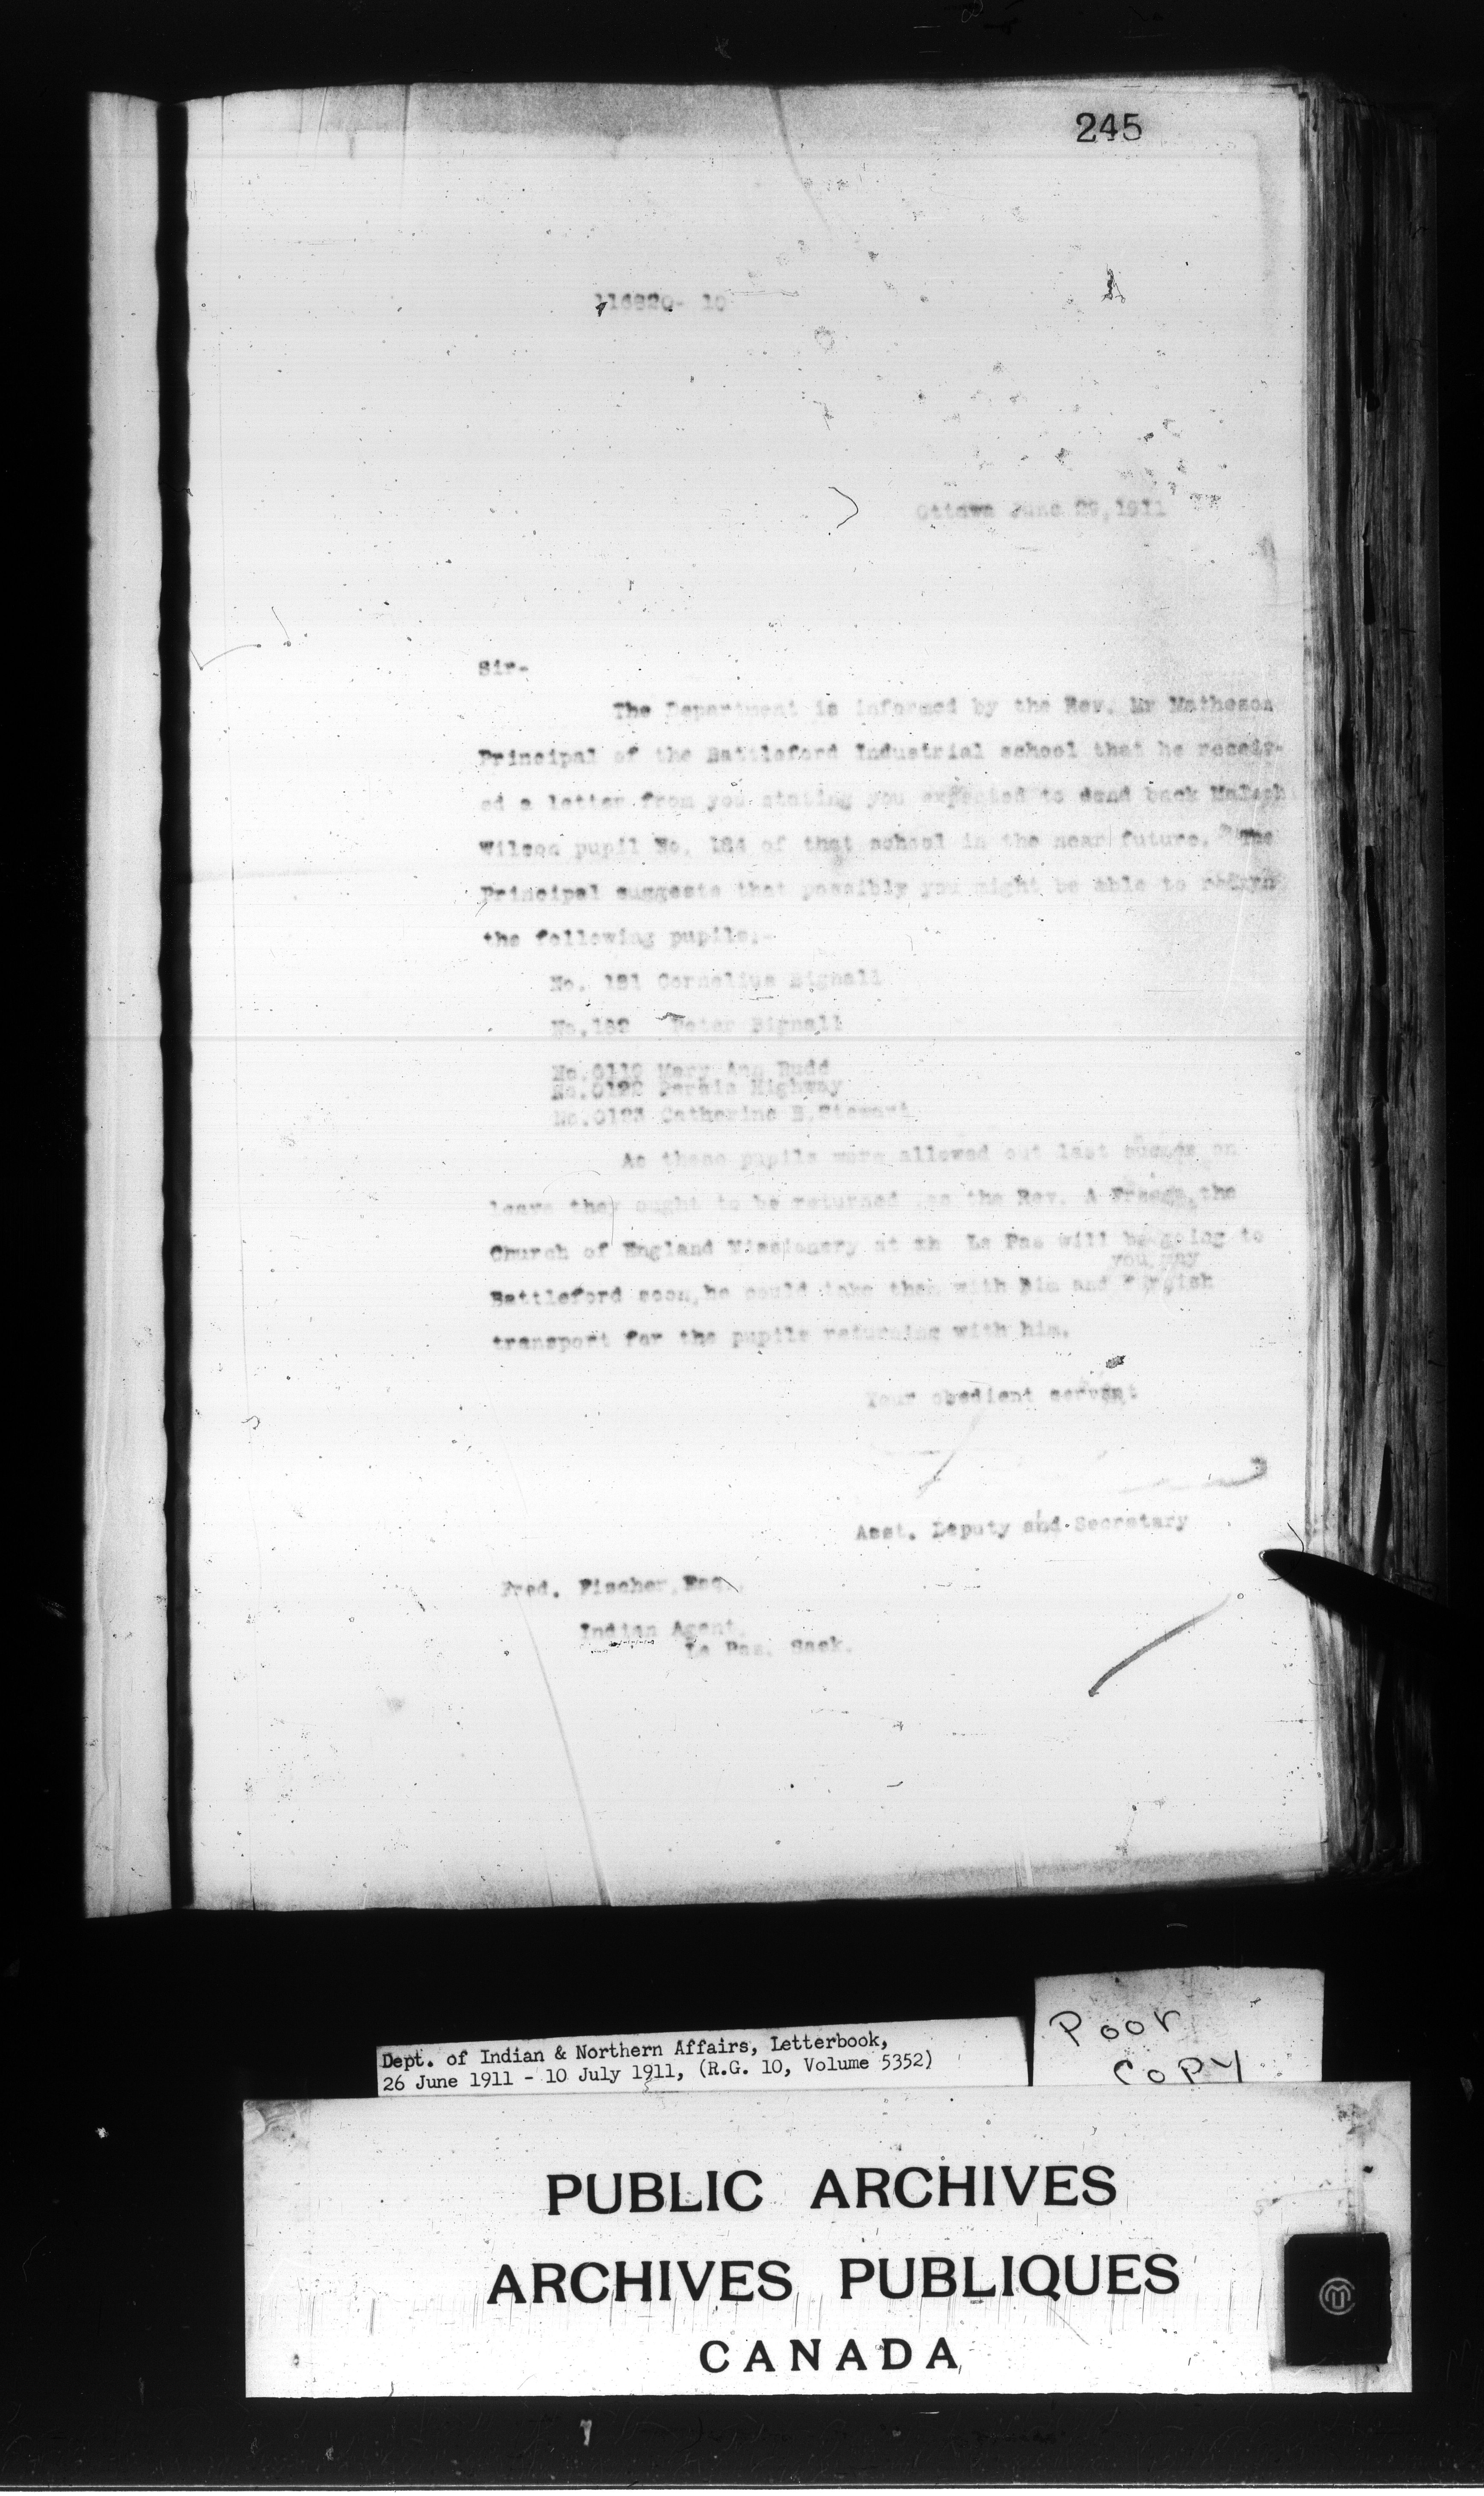 245
116820- 10
Ottawa June 29, 1911
Sir-
The Department is informed by the Rev. Mr Matheson
Principal of the Battleford Industrial school that he receiv-
ed a letter from you stating you expected to send back
Wilson pupil No. 184 of that school in the near future. The
Principal suggests that possibly you might be able to return
the following pupils,-
No. 181 Cornelius Bignall
No.182 Peter Bignall
No.0119 Mary Ann Budd
No.0122 Highway
No.0123 Catherine E.Stewart
As these pupils were allowed out last summer on
leave they ought to be returned as the Rev. A Fraser, the
Church of England Missionary at th Le Pas will be going to
you may
Battleford soon, he could take them with him and furnish
transport for the pupils returning with him.
Your obedient servant
Asst. Deputy and Secretary
Fred. Fischer, Esq.,
Indian Agent,
Le Pas. Sask.
Poor
COPY
Dept. of Indian & Northern Affairs, Letterbook,
26 June 1911 - 10 July 1911, (R.G. 10, Volume 5352)
PUBLIC ARCHIVES
ARCHIVES PUBLIQUES
CANADA